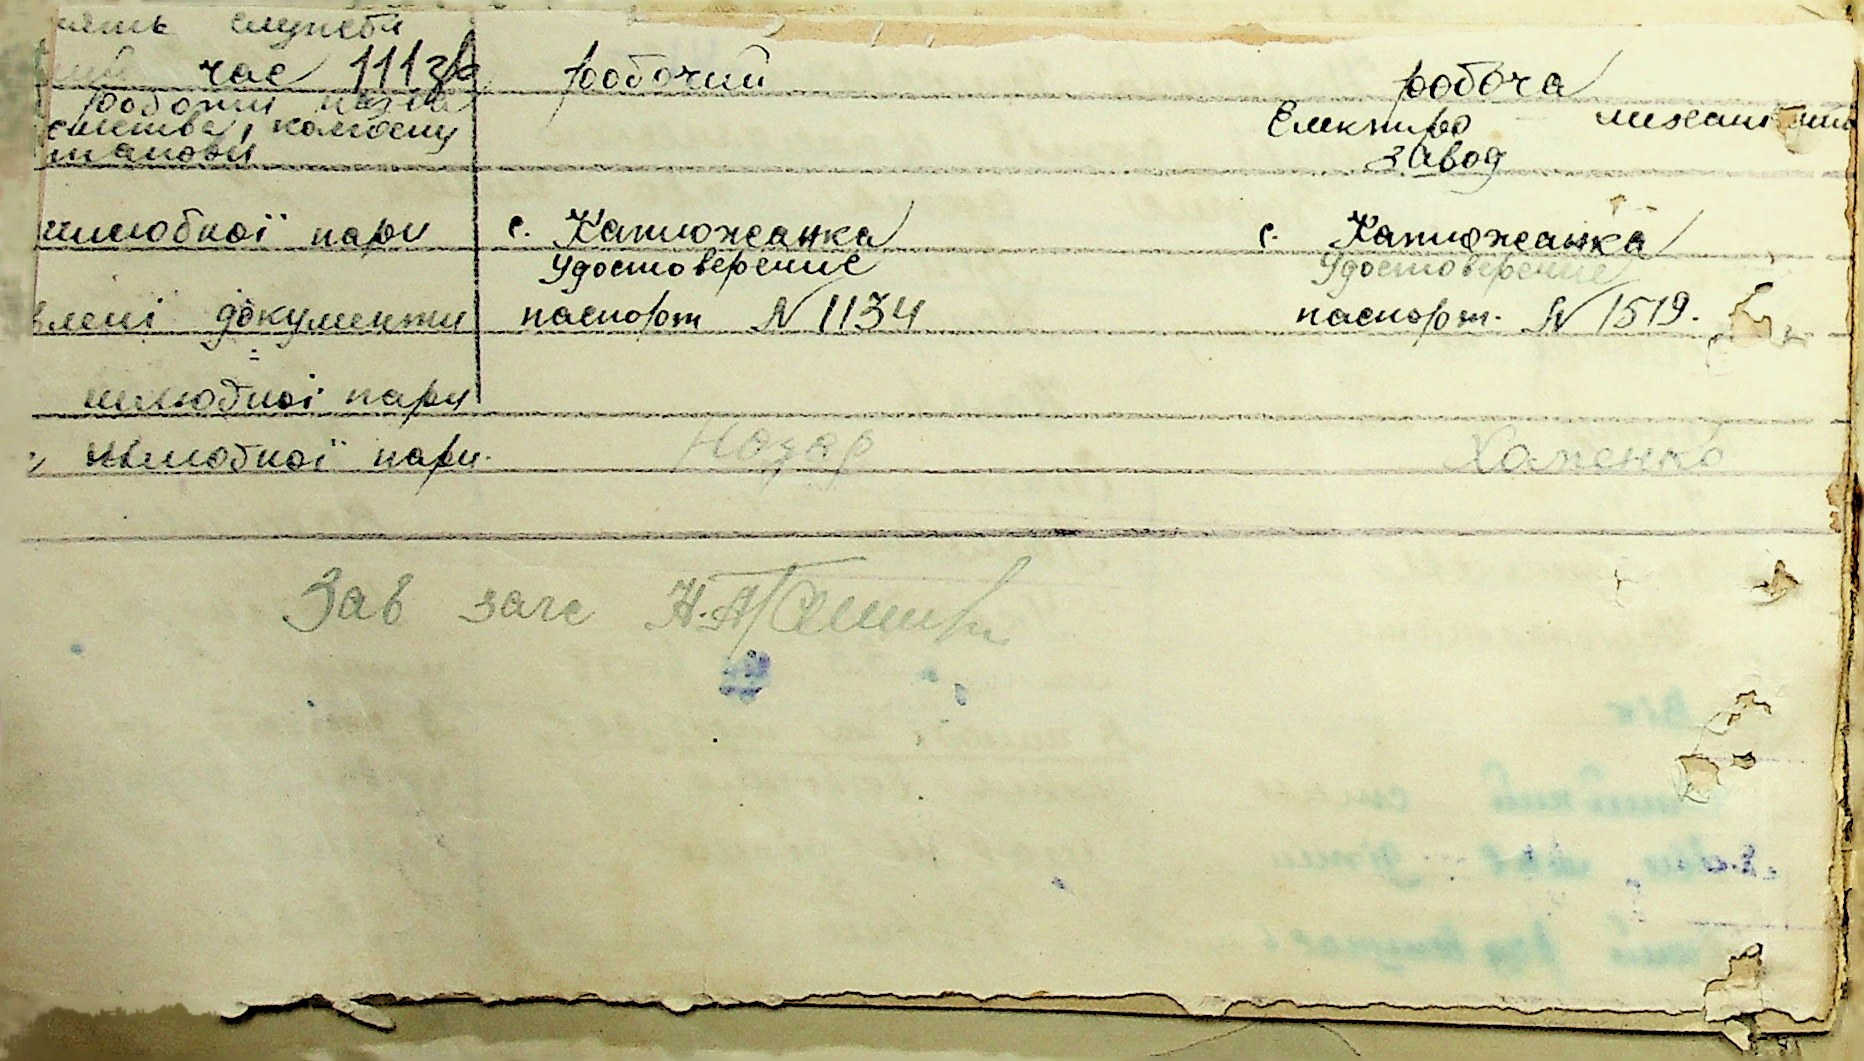 служби
час робочий робоча
колгоспу Електро механічний
установи завод
шлюбної пари с. Катюжанка с. Катюжанка
Удостоверение Удостоверение
документи паспорт N 1134 паспорт. N 1519.
шлюбної пари
шлюбної пари. Назар Хоменко
Зав загс